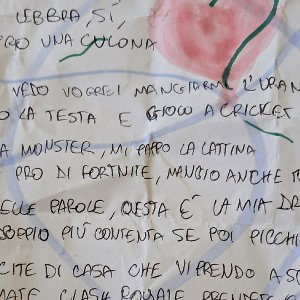 LEBBRA, SÌ,
UNA CULONA
VEDO VORREI MANGIARMI L'URAN
LA TESTA E GIOCO A CRICKET
A MONSTER, MI PAPPO LA LATTINA
PRO DI FORTNITE, MANGIO ANCHE
ELLE PAROLE, QESTA È LA MIA DR
DOPPIO PIÙ CONTENTA SE POI PICCHI
CITE DI CASA CHE VI PRENDO A S
CLASH ROYALE PRENDETE